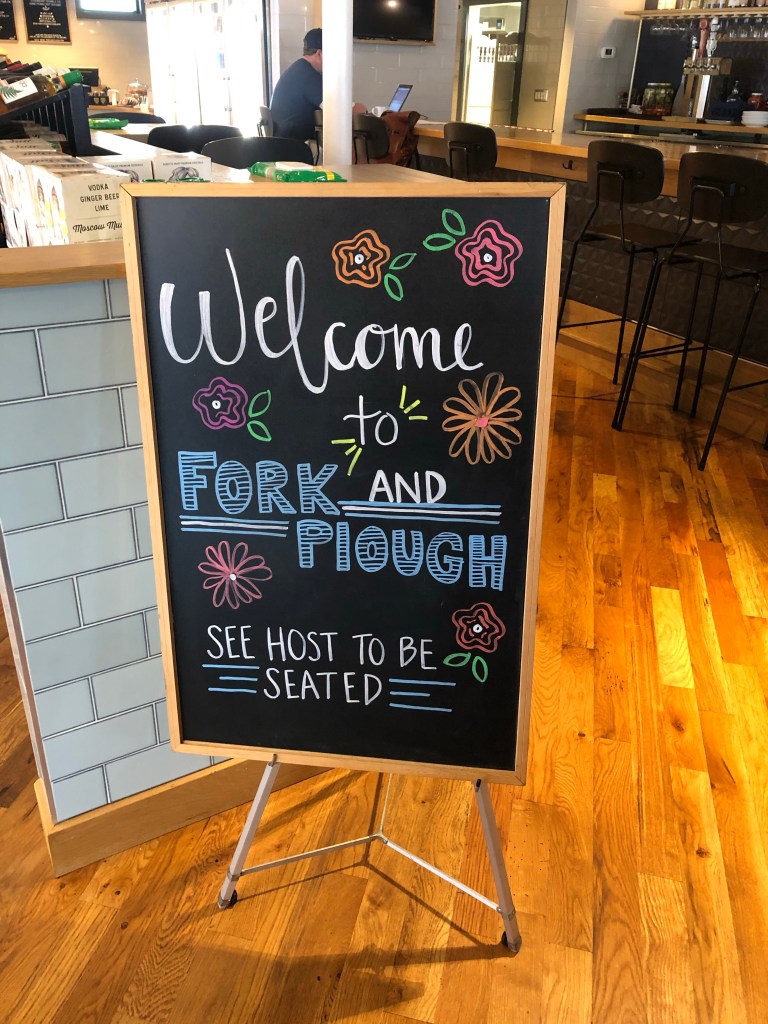 Welcome
to
FORK AND
PlOUGH
SEE HOST TO BE
SEATED
VODKA
GINGER BEER
LIME
Moscow Mu